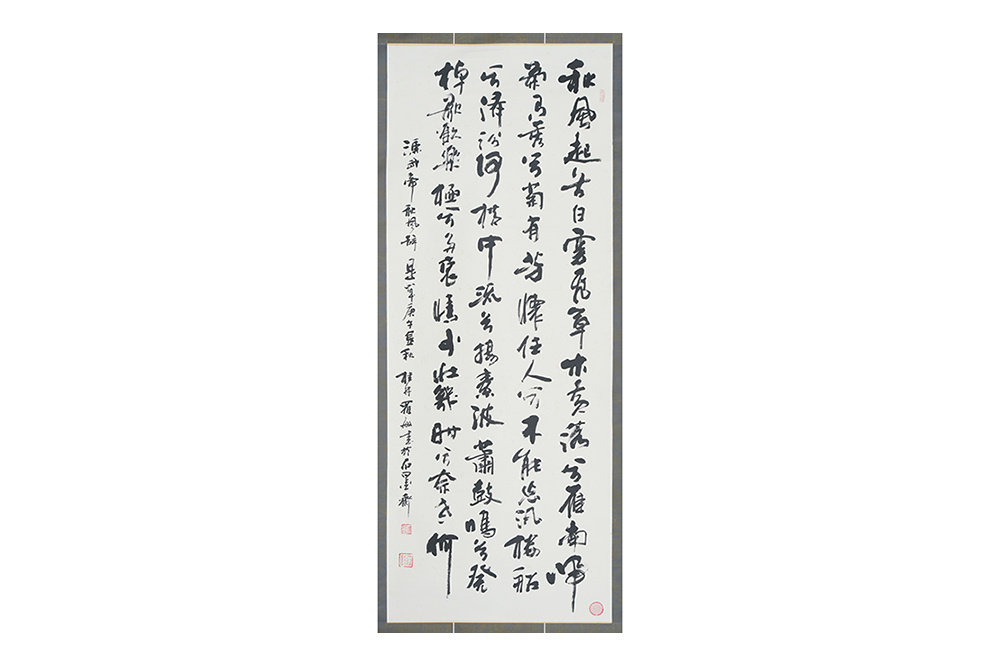 秋風起兮白雲飛草木黃落兮雁南歸
蘭有秀兮菊有芳懷佳人兮不能忘汎樓船
兮濟汾河橫中流兮揚素波蕭鼓鳴兮發
棹歌歡樂極兮多哀情少壯幾時兮奈老何
漢武帝秋風辭 歲庚午 秋 書於石墨齋